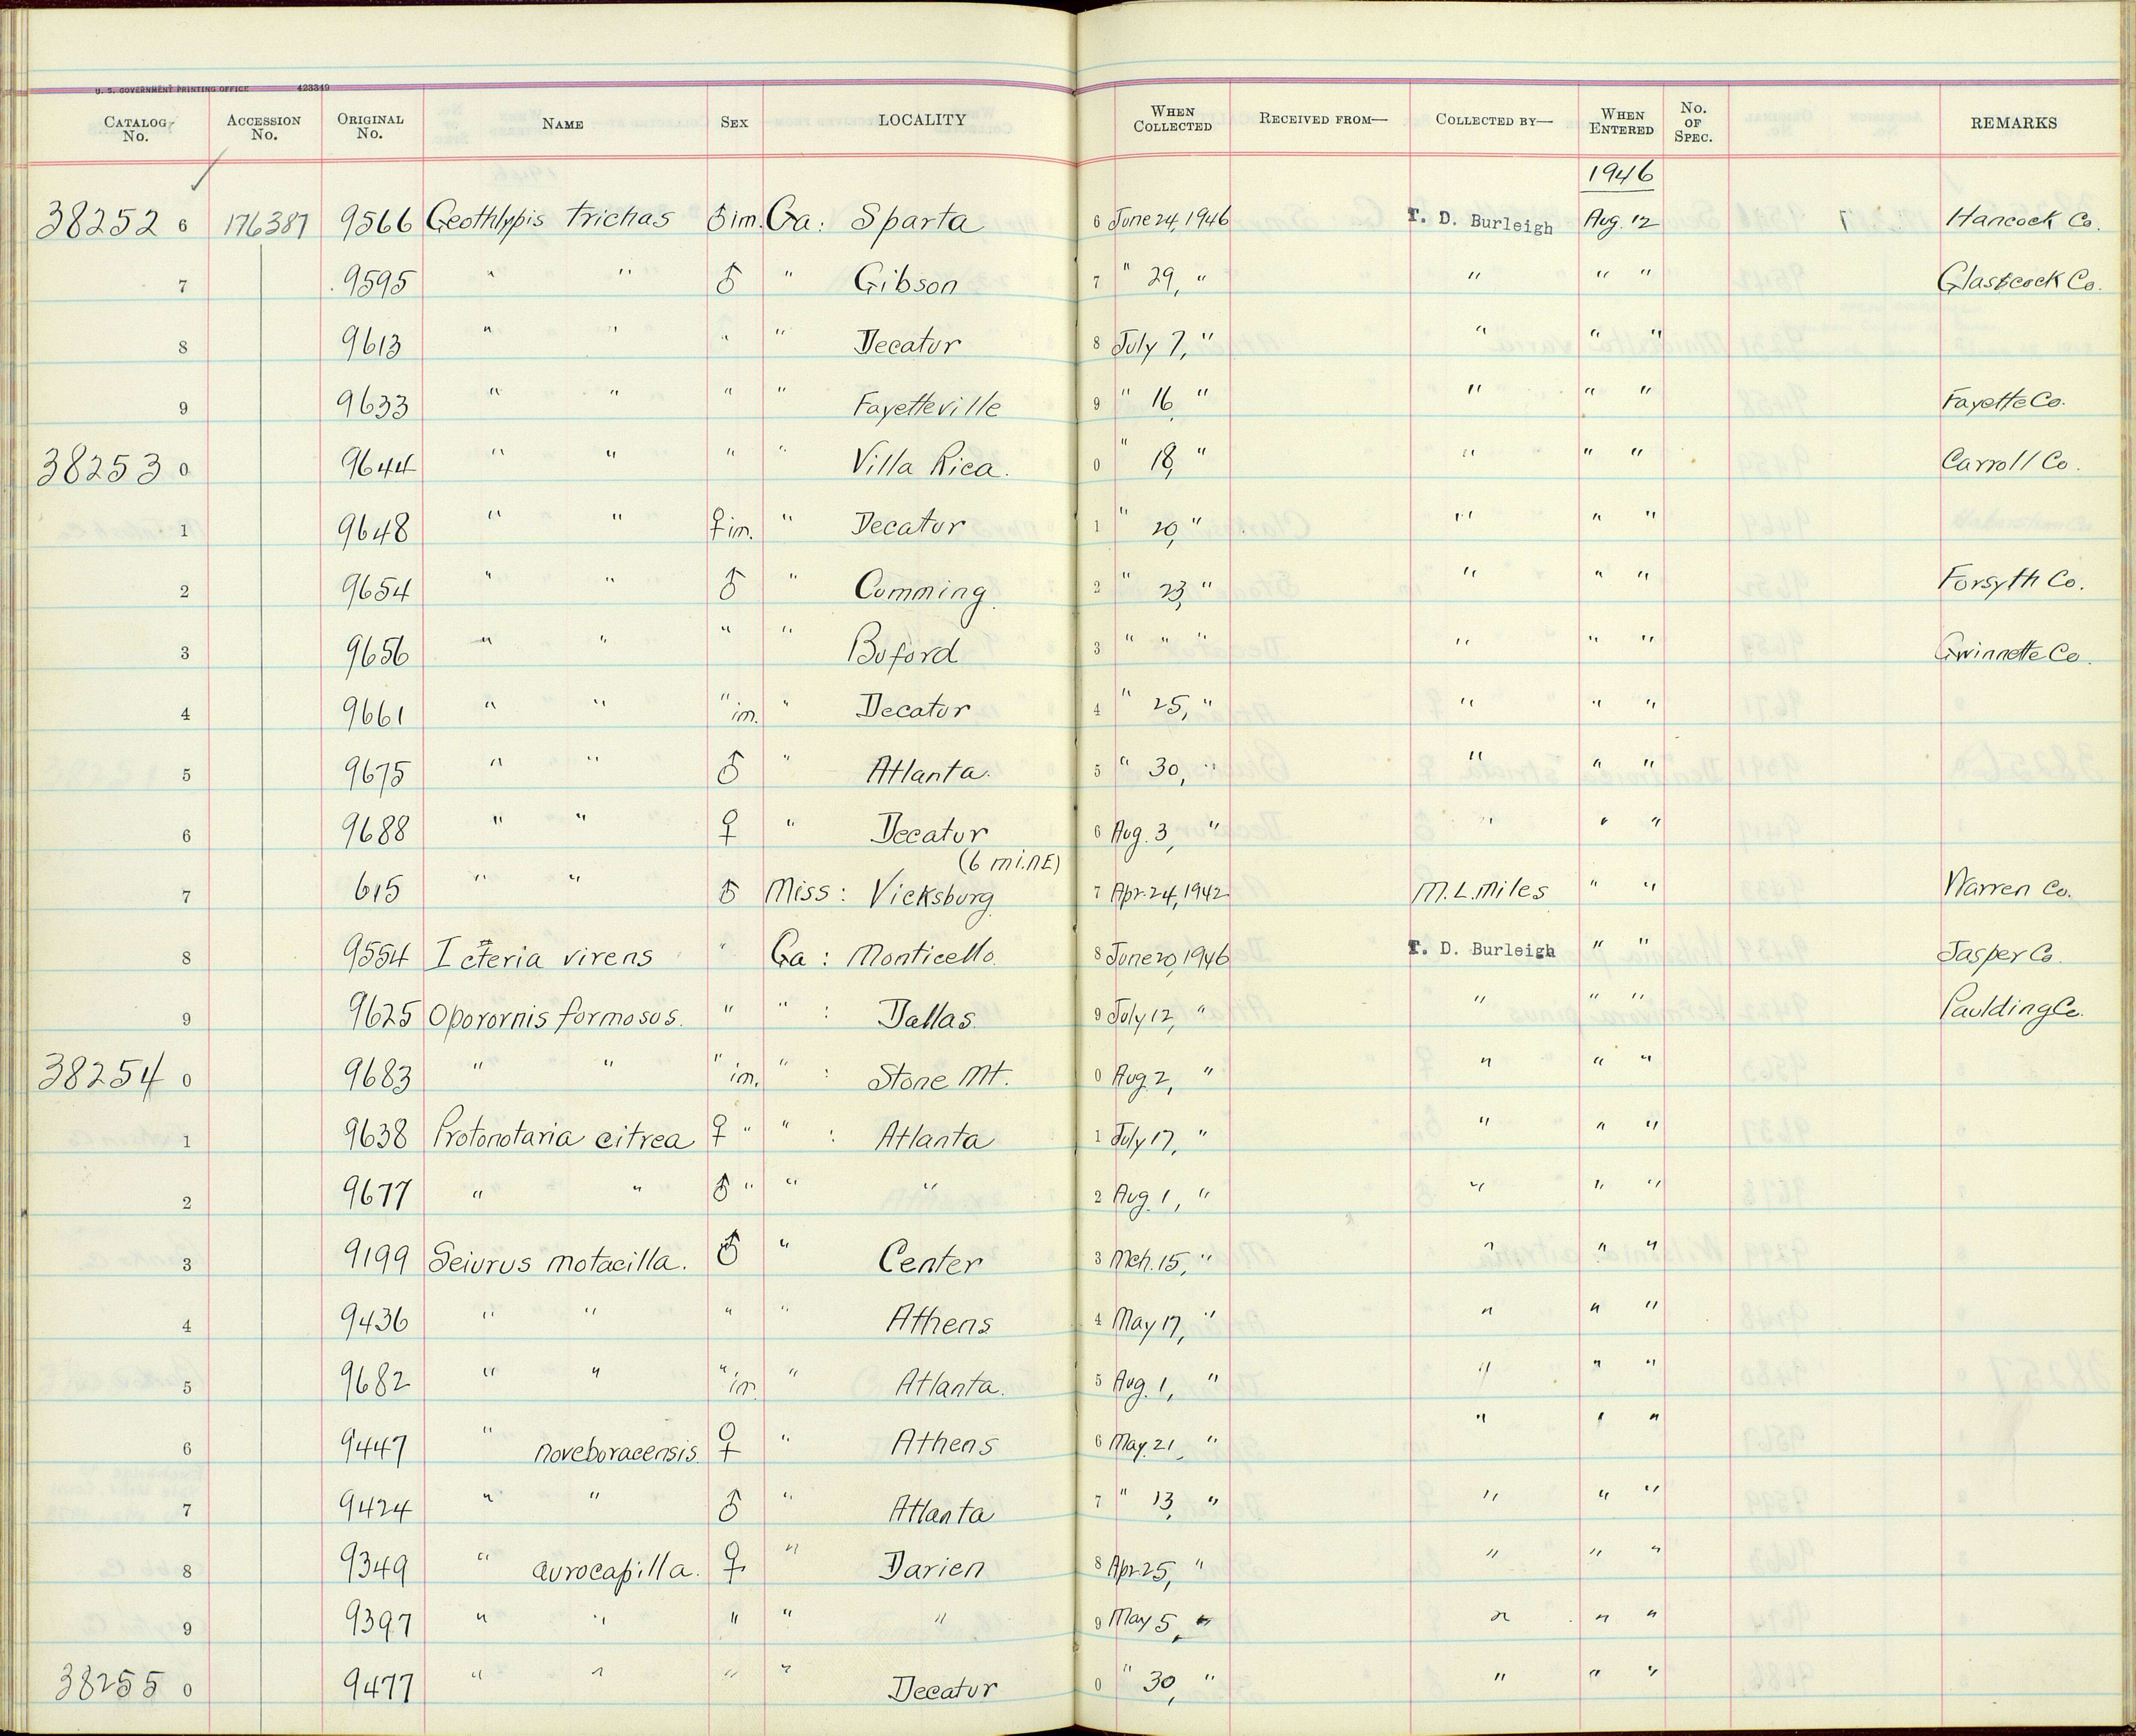 U. S. GOVERNMENT PRINTING OFFICE 423349
CATALOG No. ACCESSION No. ORIGINAL No. NAME SEX LOCALITY WHEN COLLECTED RECEIVED FROM— COLLECTED BY— WHEN ENTERED No. OF SPEC. REMARKS
1946
38252 6 176387 9566 Geothlypis trichas ♂ im. Ga: Sparta 6 June 24, 1946 T. D. Burleigh Aug. 12 Hancock Co.
7 9595 " " ♂ " Gibson 7 " 29, " " " " Glascock Co.
8 9613 " " " " Decatur 8 July 7, " " " "
9 9633 " " " " Fayetteville 9 " 16, " " " " Fayette Co.
38253 0 9644 " " " " Villa Rica. 0 " 18, " " " " Carroll Co.
1 9648 " " ♀ im. " Decatur 1 " 20, " " " "
2 9654 " " ♂ " Cumming 2 " 23, " " " " Forsyth Co.
3 9656 " " " " Buford 3 " " " " " " Gwinnette Co.
4 9661 " " " im. " Decatur 4 " 25, " " " "
5 9675 " " ♂ " Atlanta. 5 " 30, " " " "
6 9688 " " ♀ " Decatur 6 Aug. 3, " " " "
(6 mi. NE)
7 615 " " ♂ Miss: Vicksburg 7 Apr. 24, 1942 M. L. Miles " " Warren Co.
8 9554 Icteria virens " Ga: Monticello. 8 June 20, 1946 T. D. Burleigh " " Jasper Co.
9 9625 Oporornis formosus. " " : Dallas 9 July 12, " " " " Paulding Co.
38254 0 9683 " " " im. " : Stone Mt. 0 Aug. 2, " " " "
1 9638 Protonotaria citrea ♀ " " : Atlanta 1 July 17, " " " "
2 9677 " " ♂ " " " 2 Aug. 1, " " " "
3 9199 Seiurus motacilla. ♂ " Center 3 Mch. 15, " " " "
4 9436 " " " " Athens 4 May 17, " " " "
5 9682 " " " im. " Atlanta. 5 Aug. 1, " " " "
6 9447 " noveboracensis. ♀ " Athens 6 May. 21, " " " "
7 9424 " " ♂ " Atlanta 7 " 13, " " " "
8 9349 " aurocapilla. ♀ " Darien 8 Apr. 25, " " " "
9 9397 " " " " " 9 May 5, " " " "
38255 0 9477 " " " " Decatur 0 " 30, " " " "